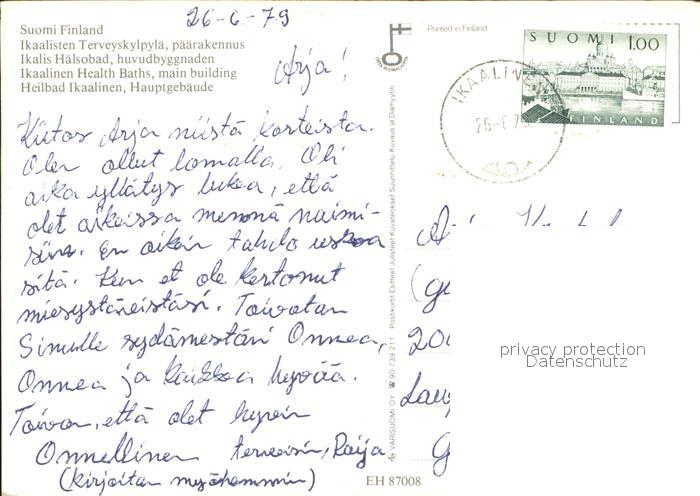 26-6-79
Suomi Finland
Ikaalisten Terveyskylpylä, päärakennus
Ikalis Hälsobad, huvudbyggnaden
Ikaalinen Health Baths, main building
Heilbad Ikaalinen, Hauptgebäude
Arja!
Kiitos Arja niistä korteista.
Olen ollut lomalla. Oli
aika yllätys lukea, että
olet aikeissa mennä naimi-
siin. En oikein tahdo uskoa
sitä. Kun et ole kertonut
miesystäväistäsi. Toivotan
Sinulle sydämestäni Onnea,
Onnea ja kaikkea hyvää.
Toivon, että olet hyvin
Onnellinen terveisin, Raija
(kirjoitan myöhemmin)
Printed in Finland
SUOMI 1.00
FINLAND
IKAALINEN
VARISUOMI OY ☎ 90-739 211
EH 87008
privacy protection
Datenschutz